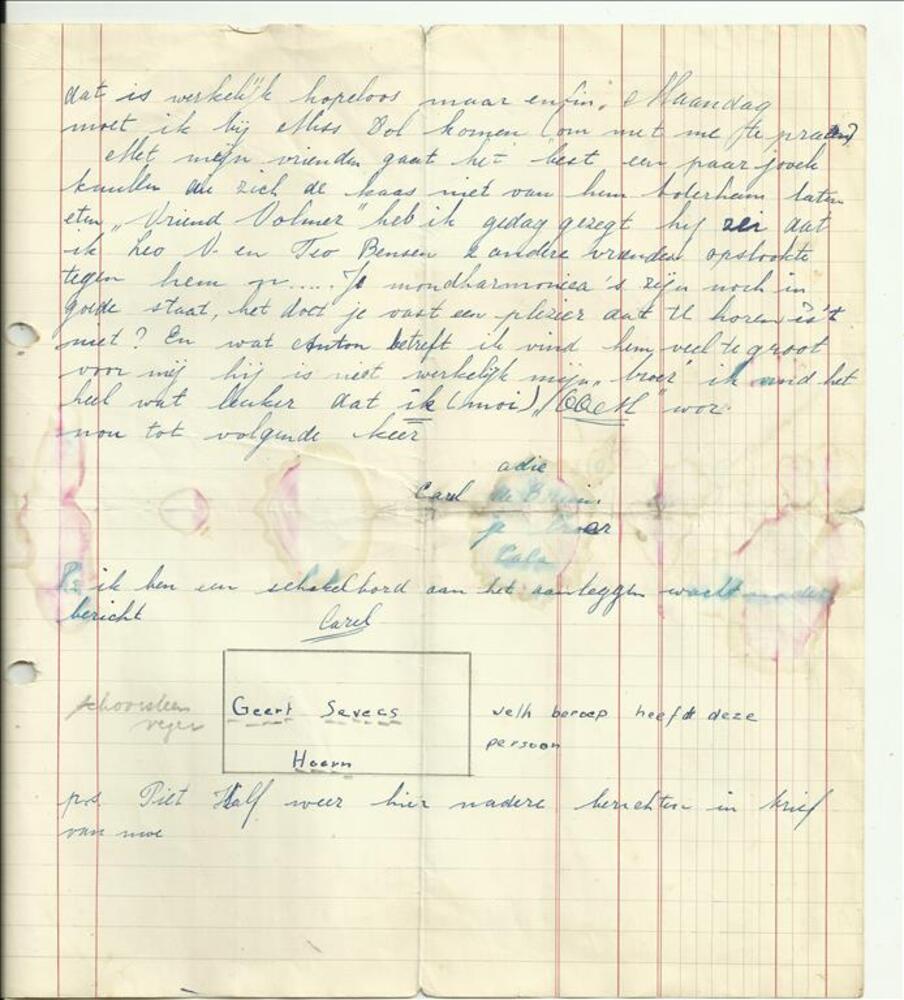 dat is werkelijk hopeloos maar enfin. Maandag
moet ik bij Miss Dol komen (om met me te praten)
Met mijn vrienden gaat het best een paar
knullen die zich de kaas niet van hun boterham laten
eten „Vriend Volmer" heb ik gedag gezegt hij zei dat
ik Leo V. en Teo Bensen 2 andere vrienden opstookte
tegen hem ..... Je mondharmonica's zijn noch in
goede staat, het doet je vast een plezier dat te horen is't
niet? En wat Anton betreft ik vind hem veel te groot
voor mij hij is niet werkelijk mijn „broer" ik vind het
heel wat leuker dat ik (moi) „OOM" wor
nou tot volgende keer
adie
Carel de Bruin
je
Cala
Ps ik ben een schakelbord aan het aanleggen wacht nader
bericht Carel
schoorsteen
veger
Geert Sevecs
Hoorn
welk beroep heeft deze
persoon
p.s. Piet Half weer hier nadere berichten in brief
van moe